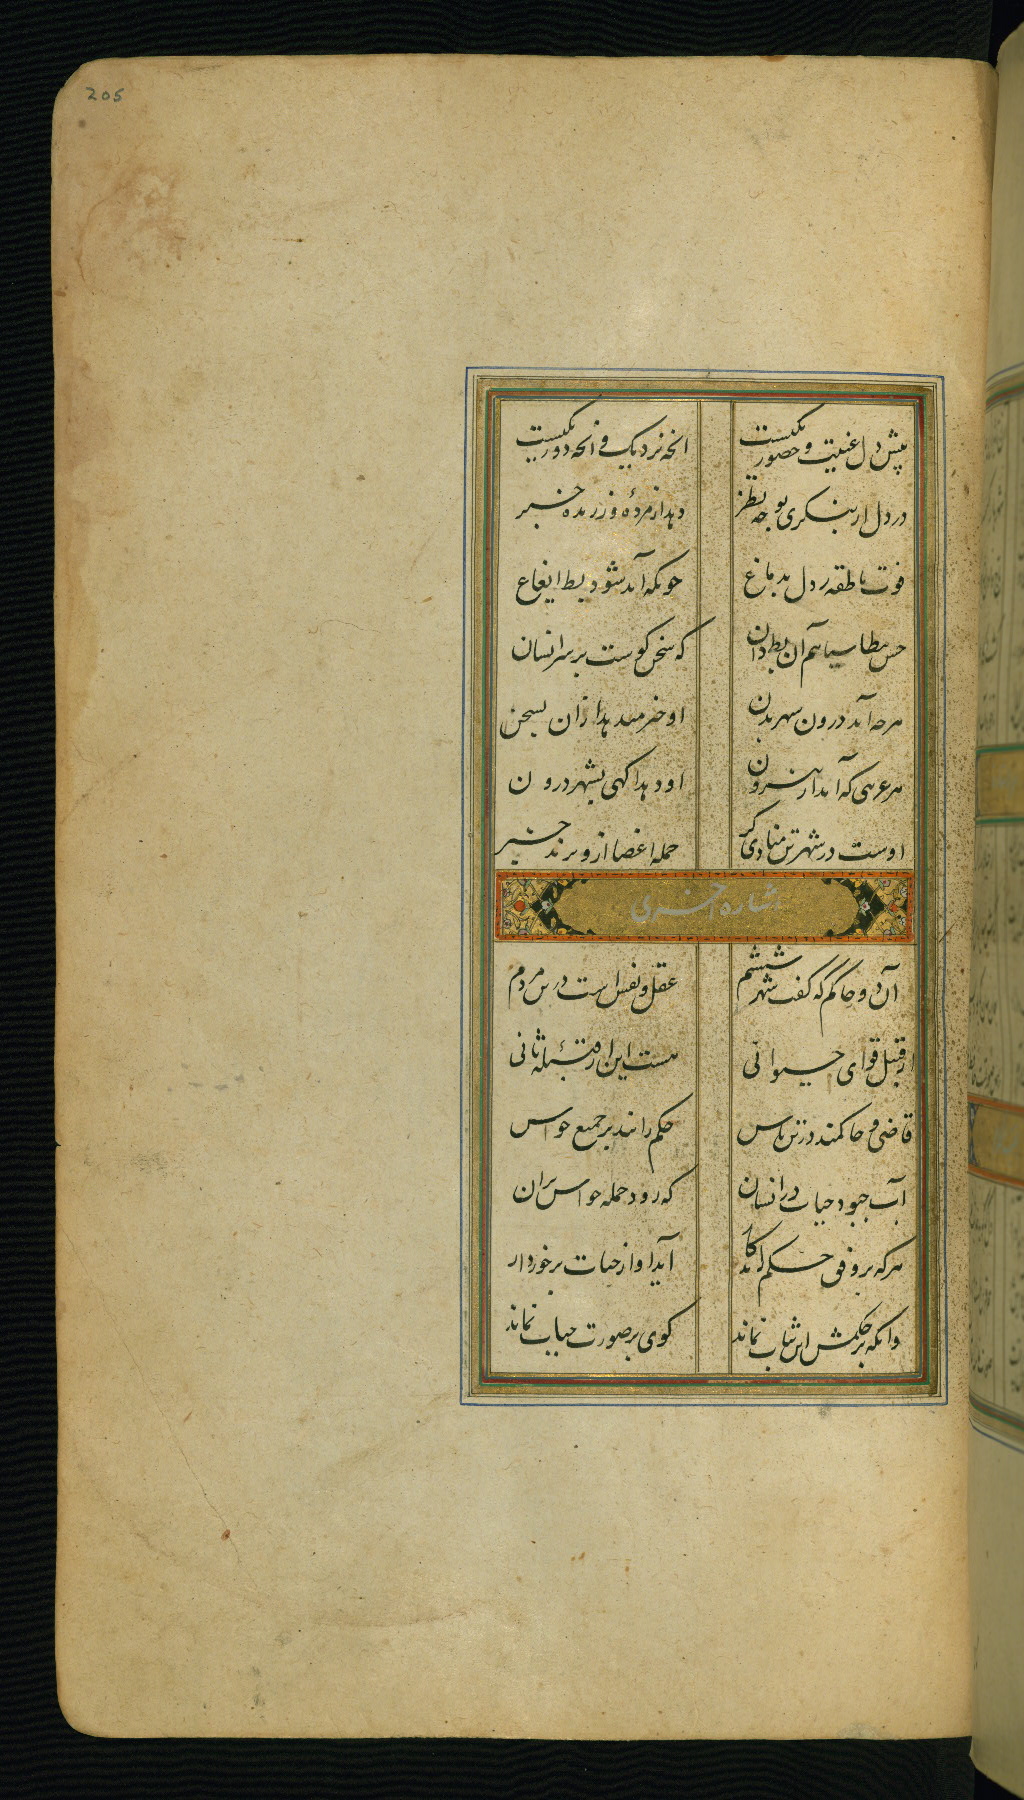 205
پیش دل غیبت و حضور یکیست انچه نزدیک و انچه دور یکیست
در دل ار بنگری بوجه نظر دهد از مرده و ز زنده خبر
قوت ناطقه ز دل بدماغ چونکه آید شود بط ایغاغ
هم آن بط دان که سخن کوست بر سر انسان
هرچه آید درون شهر بدن او خبر میدهد ازان بسخن
هر که آید از بیرون او دهد اکهی بشهر درون
اوست در شهر تن منادی کر جمله اعضا ازو برند خبر
اشاره اخری
آن دو حاکم که کفت شهر ششم عقل و نفس است در تن مردم
از قبل قوای حیوانی هست این را ثانی
قاضی و حاکمند در تن ناس حکم رانند بر جمیع حواس
آب چبود حیات در انسان که رود جمله حواس بران
هر که بر وفق حکم کار آید او از حیات برخوردار
وانکه بر حکمش نماند کوی بر صورت حیات نماند